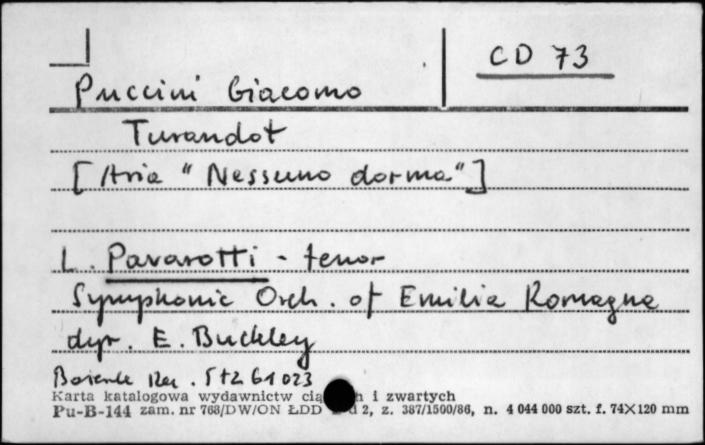 CD 73
Puccini Giacomo
Turandot
[Aria "Nessuno dorma"]
L. Pavarotti - tenor
Symphonic Orch. of Emilia Romagna
dyr. E. Buckley
61 023
Karta katalogowa wydawnictw i zwartych
Pu-B-144 zam. nr 768/DW/ON ŁDD 2, z. 387/1500/86, n. 4 044 000 szt. f. 74×120 mm